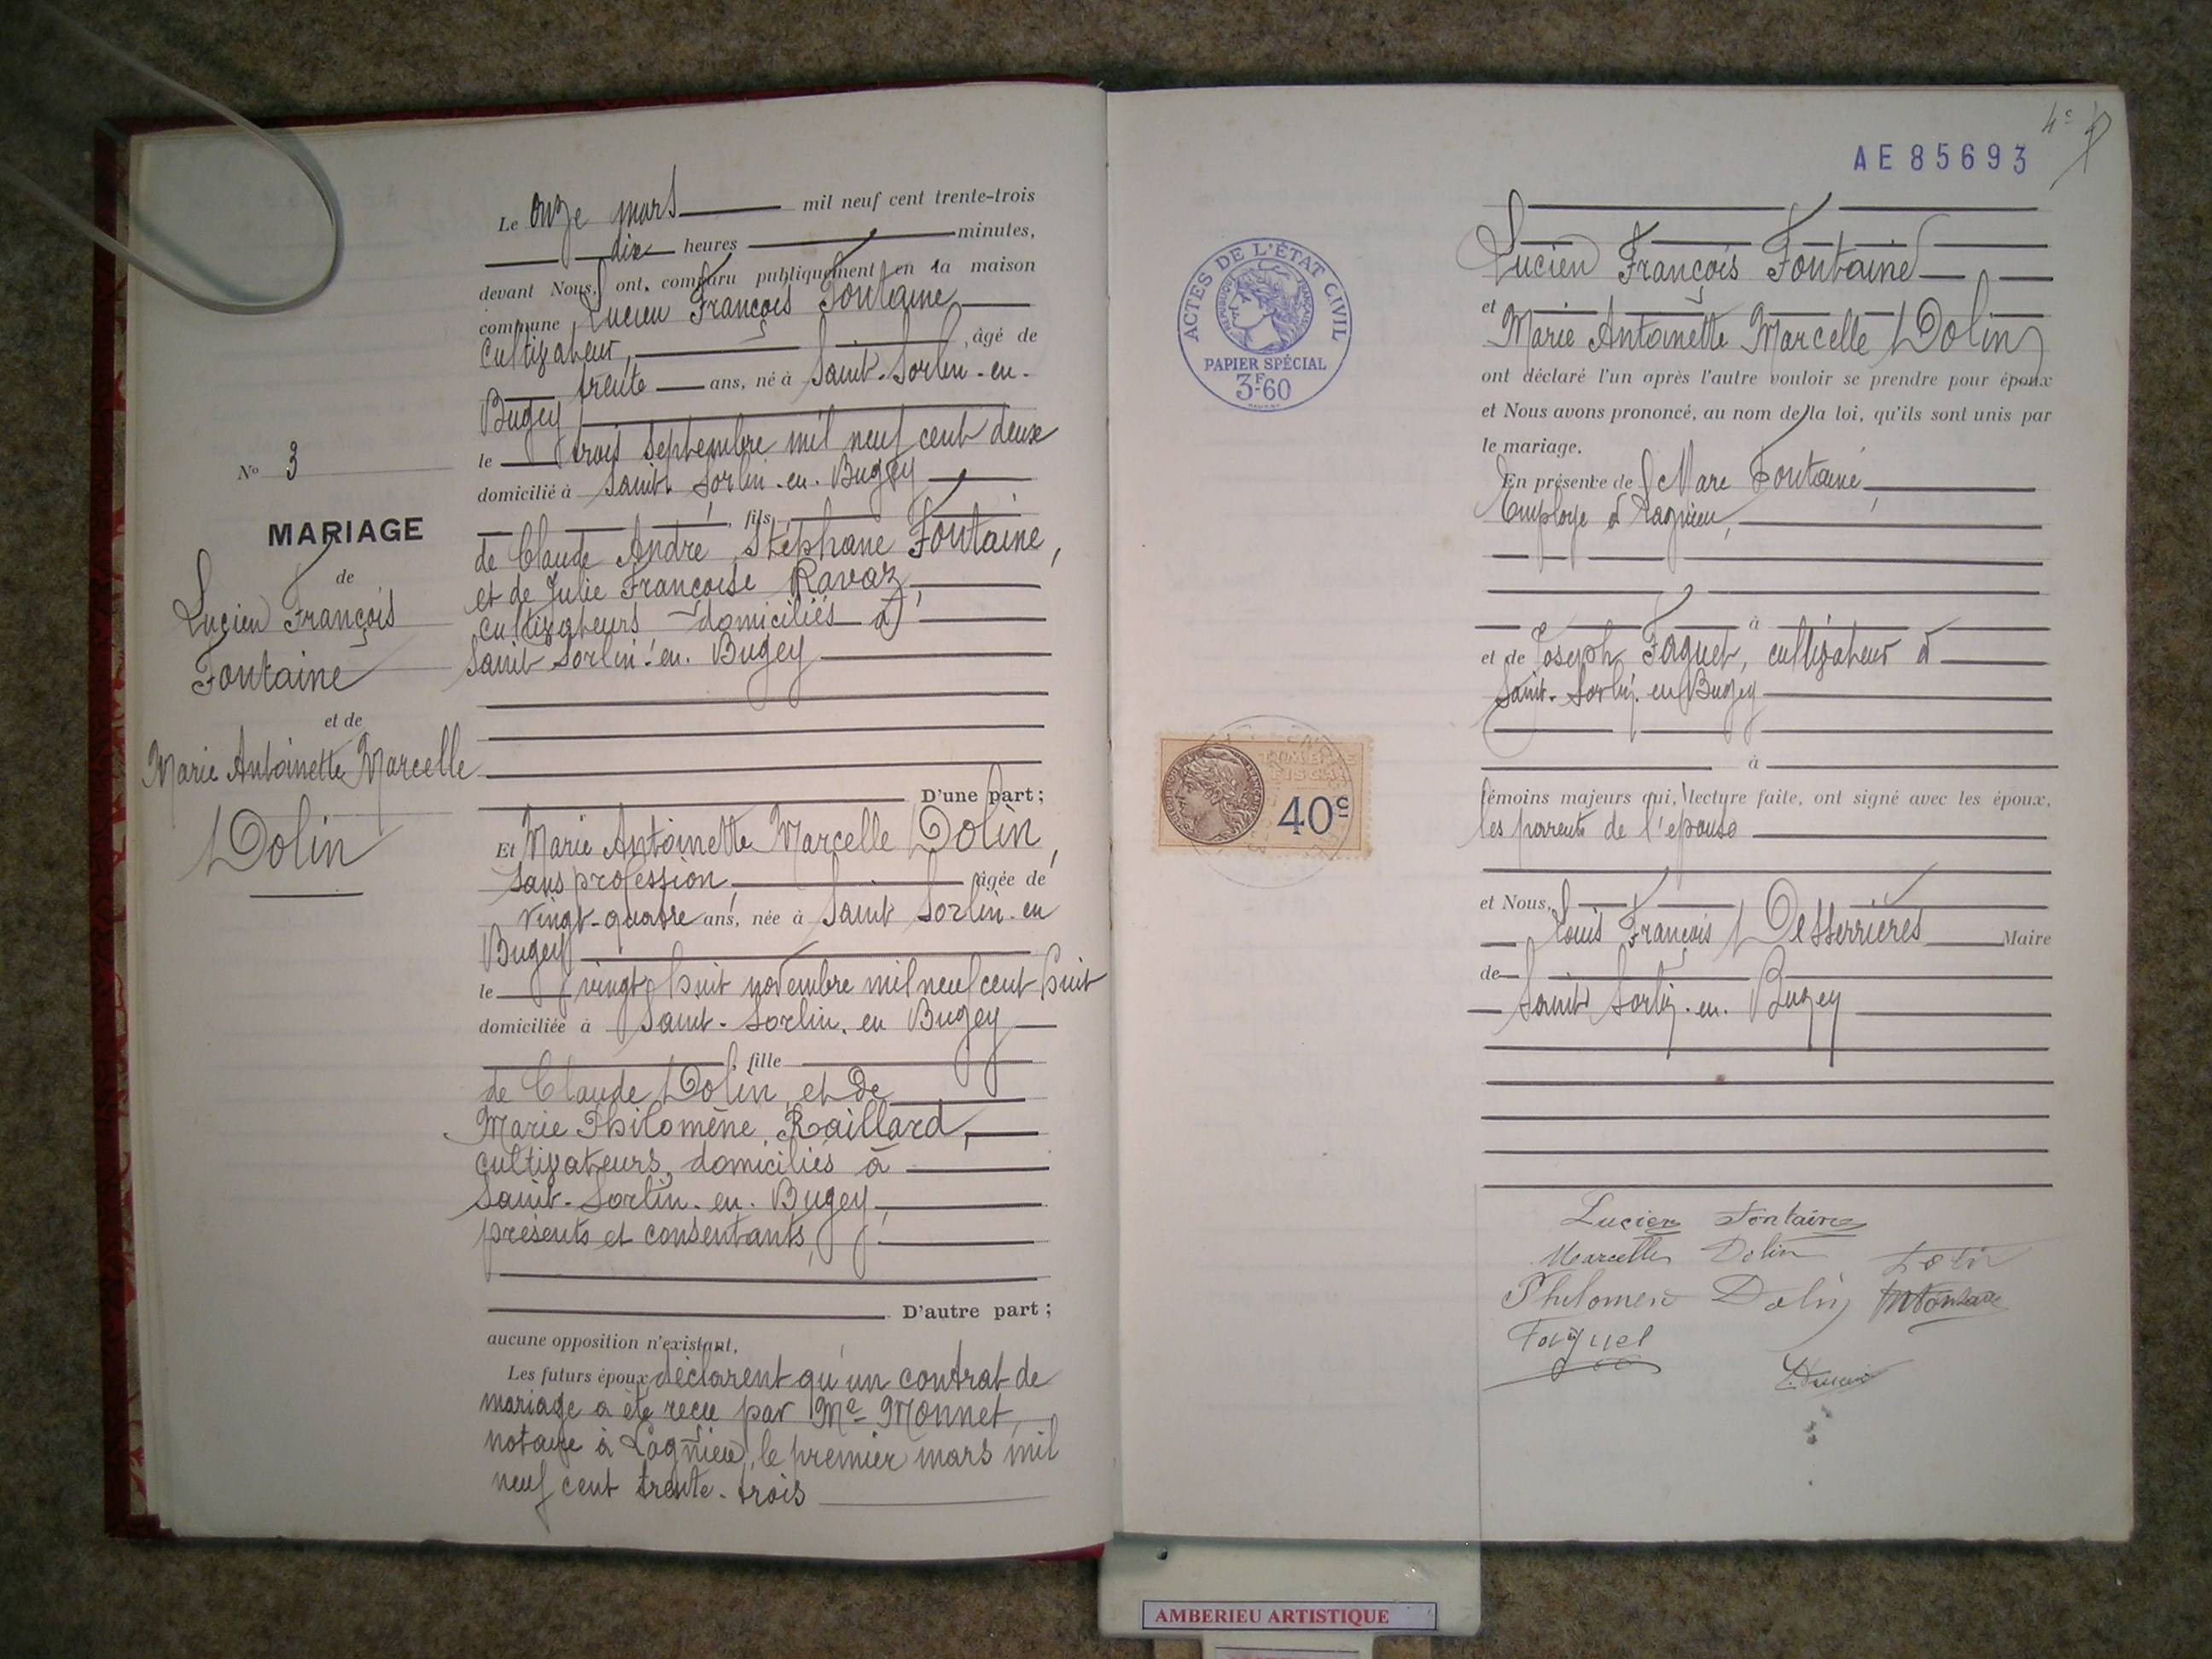 N° 3
MARIAGE
de
Lucien François
Fontaine
et de
Marie Antoinette Marcelle
Dolin
Le onze mars mil neuf cent trente-trois
dix heures minutes,
devant Nous, ont comparu publiquement en la maison
commune Lucien François Fontaine
cultivateur, , âgé de
trente ans, né à Saint-Sorlin-en-
Bugey
le trois septembre mil neuf cent deux
domicilié à Saint-Sorlin-en-Bugey
, fils
de Claude André Stéphane Fontaine,
et de Julie Françoise Ravaz,
cultivateurs domiciliés à
Saint Sorlin-en-Bugey
D'une part;
Et Marie Antoinette Marcelle Dolin,
sans profession, âgée de
vingt-quatre ans, née à Saint Sorlin-en
Bugey
le vingt huit novembre mil neuf cent huit
domiciliée à Saint-Sorlin-en Bugey
, fille
de Claude Dolin, et de
Marie Philomène Raillard,
cultivateurs, domiciliés à
Saint-Sorlin-en-Bugey,
présents et consentants,
D'autre part;
aucune opposition n'existant,
Les futurs époux déclarent qu'un contrat de
mariage a été reçu par Me Monnet,
notaire à Lagnieu, le premier mars mil
neuf cent trente-trois
4e
AE85693
ACTES DE L'ÉTAT CIVIL
RÉPUBLIQUE FRANÇAISE
PAPIER SPÉCIAL
3F60
TIMBRE
FISCAL
40c
Lucien François Fontaine
et
Marie Antoinette Marcelle Dolin
ont déclaré l'un après l'autre vouloir se prendre pour époux
et Nous avons prononcé, au nom de la loi, qu'ils sont unis par
le mariage.
En présence de Marc Fontaine,
Employé à Lagnieu,
à
et de Joseph Faguet, cultivateur à
Saint-Sorlin-en Bugey
à
témoins majeurs qui, lecture faite, ont signé avec les époux,
les parents de l'épouse
et Nous,
Louis François Desserrières Maire
de
Saint Sorlin-en-Bugey
Lucien Fontaine
Marcelle Dolin Dolin
Philomène Dolin
Faguet
AMBERIEU ARTISTIQUE